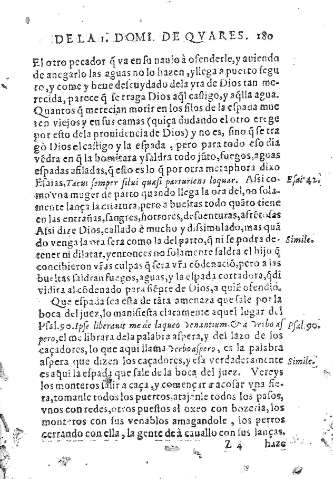 DE LA 1. DOMI. DE QVARES. 180
El otro pecador q̃ va en su nauio à ofenderle, y auiendo
de anegarlo las aguas no lo hazen, y llega a puerto segu
ro, y come y beue descuydado dela yra de Dios tan me-
recida, parece q̃ se traga Dios aq̃l castigo, y aq̃lla agua.
Quantos q̃ merecian morir en los filos de la espada mue
ren viejos y en sus camas (quiça dudando el otro erege
por esto dela prouidencia de Dios) y no es, sino q̃ se tra
gò Dios el castigo y la espada, pero para todo eso dia
vēdra en q̃ la bomitara y saldra todo jūto, fuegos, aguas
espadas afiladas, q̃ esto es lo q̃ por otra metaphora dixo
Esaias, Tacui semper silui quasi parturiens loquar. Asi co- Esai. 42.
mo vna muger de parto quando llega la ora del, no sola-
mente lança la criatura, pero a bueltas todo quāto tiene
en las entrañas, sangres, horrores, desuenturas, afrētas
Asi dire Dios, callado è mucho y disimulado, mas quā
do venga la ora sera como la del parto, q̃ ni se podra de- Simile.
tener ni dilatar, y entonces no solamente saldra el hijo q̃
concibieron vr̃as culpas q̃ sera vr̃a cōdenaciō, pero a las
bueltas saldran fuegos, aguas, y la espada cortadora, q̃ di
vidira al cōdenado para siēpre de Dios, a quiē ofendio.
Que espada sea esta de tāta amenaza que sale por la
boca del juez, lo manifiesta claramente aquel lugar del
Psal. 90. Ipse liberauit me de laqueo venantium & a verbo as Psal. 90.
pero, el me librara dela palabra aspera, y del lazo de los
caçadores, lo que aqui llama verbo aspero, es la palabra
aspera que dizen los caçadores, y esa verdaderamente Simile.
es aqui la espada que sale de la boca del juez. Vereys
los monteros salir a caça, y començar a acosar vna fie
ra, tomanle todos los puertos, atajenle todos los pasos,
vnos con redes, otros puestos al oxeo con bozeria, los
monteros con sus venablos amagandole, los perros
cerrando con ella, la gente de à cauallo con sus lanças.
Z 4 haze